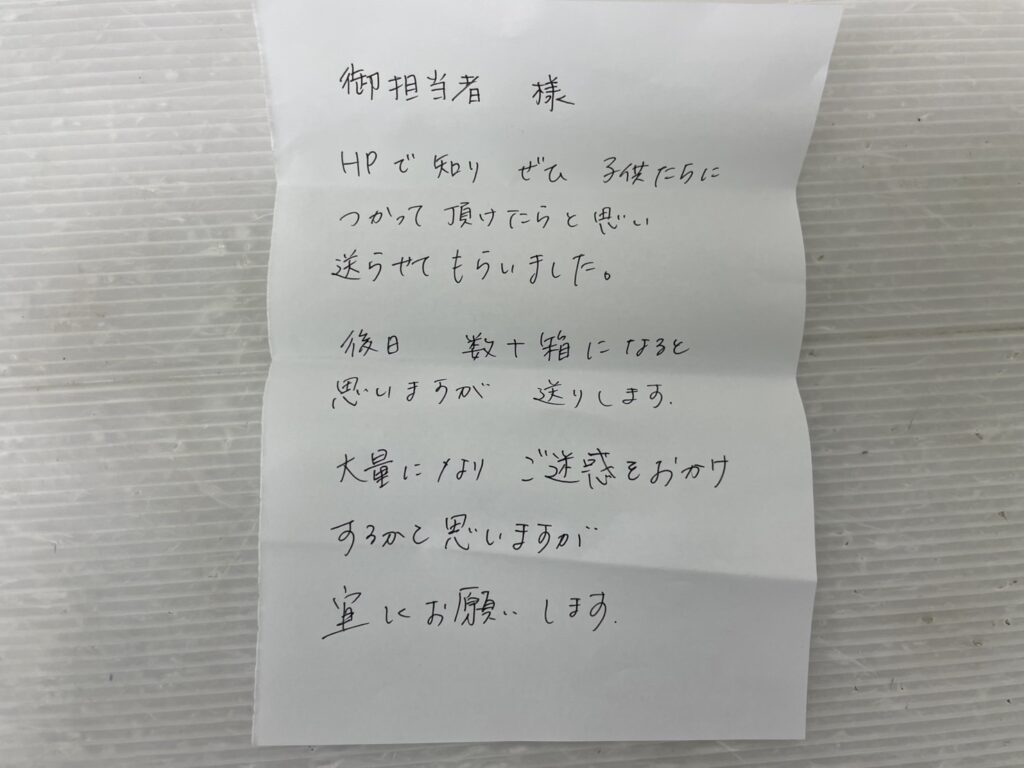 御担当者 様
HPで知り ぜひ 子供たちに
つかって頂けたらと思い
送らせてもらいました。
後日 数十箱になると
思いますが 送りします.
大量になり ご迷惑をおかけ
するかと思いますが
宜しくお願いします.